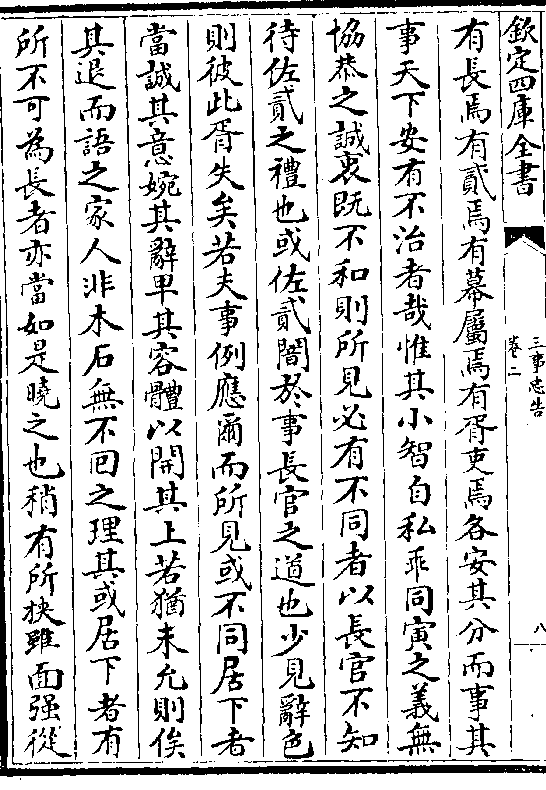 欽定四庫全書
三事忠告
卷二
八
有長焉有貳焉有幕屬焉有胥吏焉各安其分而事其
事天下安有不治者哉惟其小智自私乖同寅之義無
協恭之誠衷既不和則所見必有不同者以長官不知
待佐貳之禮也或佐貳闇於事長官之道也少見辭色
則彼此胥失矣若夫事例應爾而所見或不同居下者
當誠其意婉其辭卑其容體以開其上若猶未允則俟
其退而語之家人非木石無不囘之理其或居下者有
所不可為長者亦當如是曉之也稍有所挾雖面强從